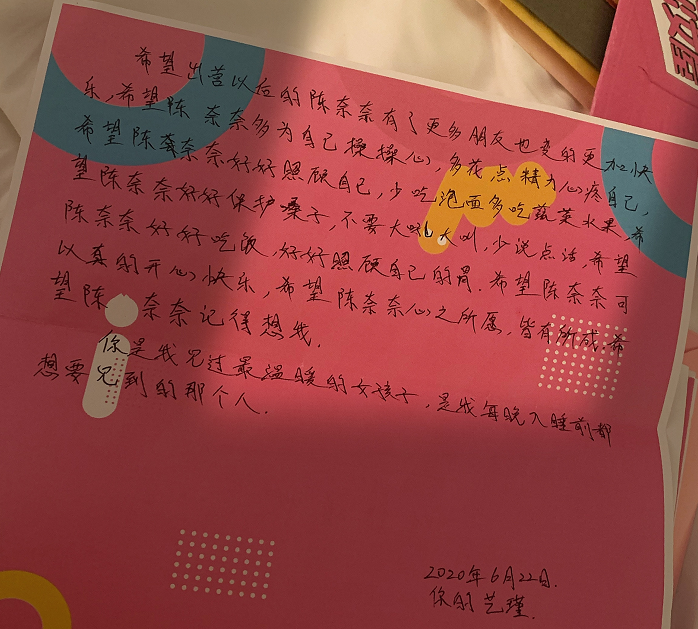 希望出营以后的陈奈奈有了更多朋友也变的更加快
乐,希望陈奈奈多为自己操操心,多花点精力心疼自己,
希望陈奈奈好好照顾自己,少吃泡面多吃蔬菜水果,希
望陈奈奈好好保护嗓子,不要大吼大叫,少说点话,希望
陈奈奈好好吃饭,好好照顾自己的胃.希望陈奈奈可
以真的开心快乐,希望陈奈奈心之所愿,皆有所成.希
望陈奈奈记得想我.
你是我见过最温暖的女孩子,是我每晚入睡前都
想要见到的那个人.
2020年6月22日.
你的艺瑾.